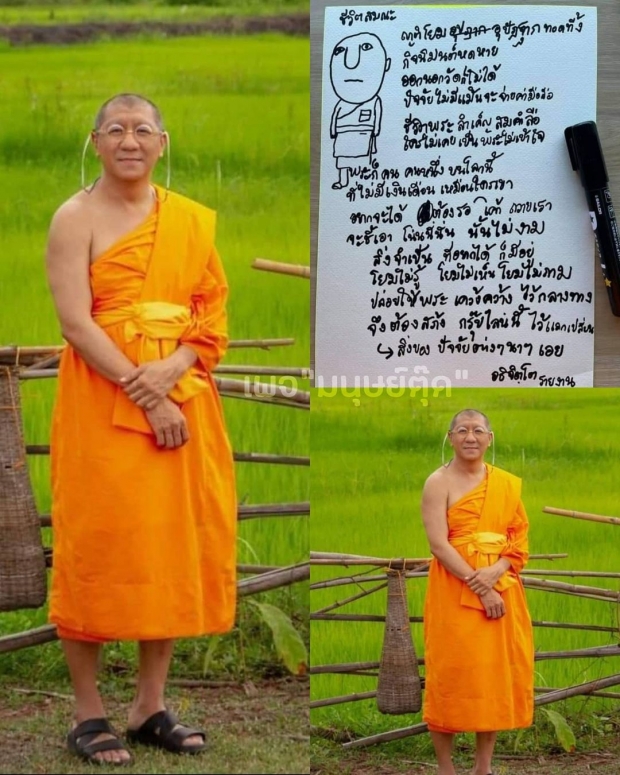 ชีวิตสมณะ
ญาติโยม อุปัฏฐาก ทอดทิ้ง
กิจนิมนต์หดหาย
ออกนอกวัดก็ไม่ได้
ปัจจัยไม่มีแม้นจะจ่ายค่ามือถือ
ชีวิตพระ สำเค็ญ
ใครไม่เคยเป็นพระไม่เข้าใจ
พระก็คน คนหนึ่ง บนโลกนี้
ที่ไม่มีเงินเดือน เหมือนใครเขา
อยากจะได้ ต้องรอ ถวายเรา
จะชี้เอา โน่นนี่นั่น นั้นไม่งาม
สิ่งจำเป็น ที่อยากได้ ก็มีอยู่
โยมไม่รู้ โยมไม่เห็น โยมไม่ถาม
ปล่อยให้พระ เคว้งคว้าง ไว้กลางทาง
จึงต้องสร้าง กรุ๊ปไลน์นี้ ไว้แลกเปลี่ยน
สิ่งของ ปัจจัยต่างๆนาๆ เอย
อธิจิตฺโต รายงาน
เพจ"มนุษย์ตุ๊ด"